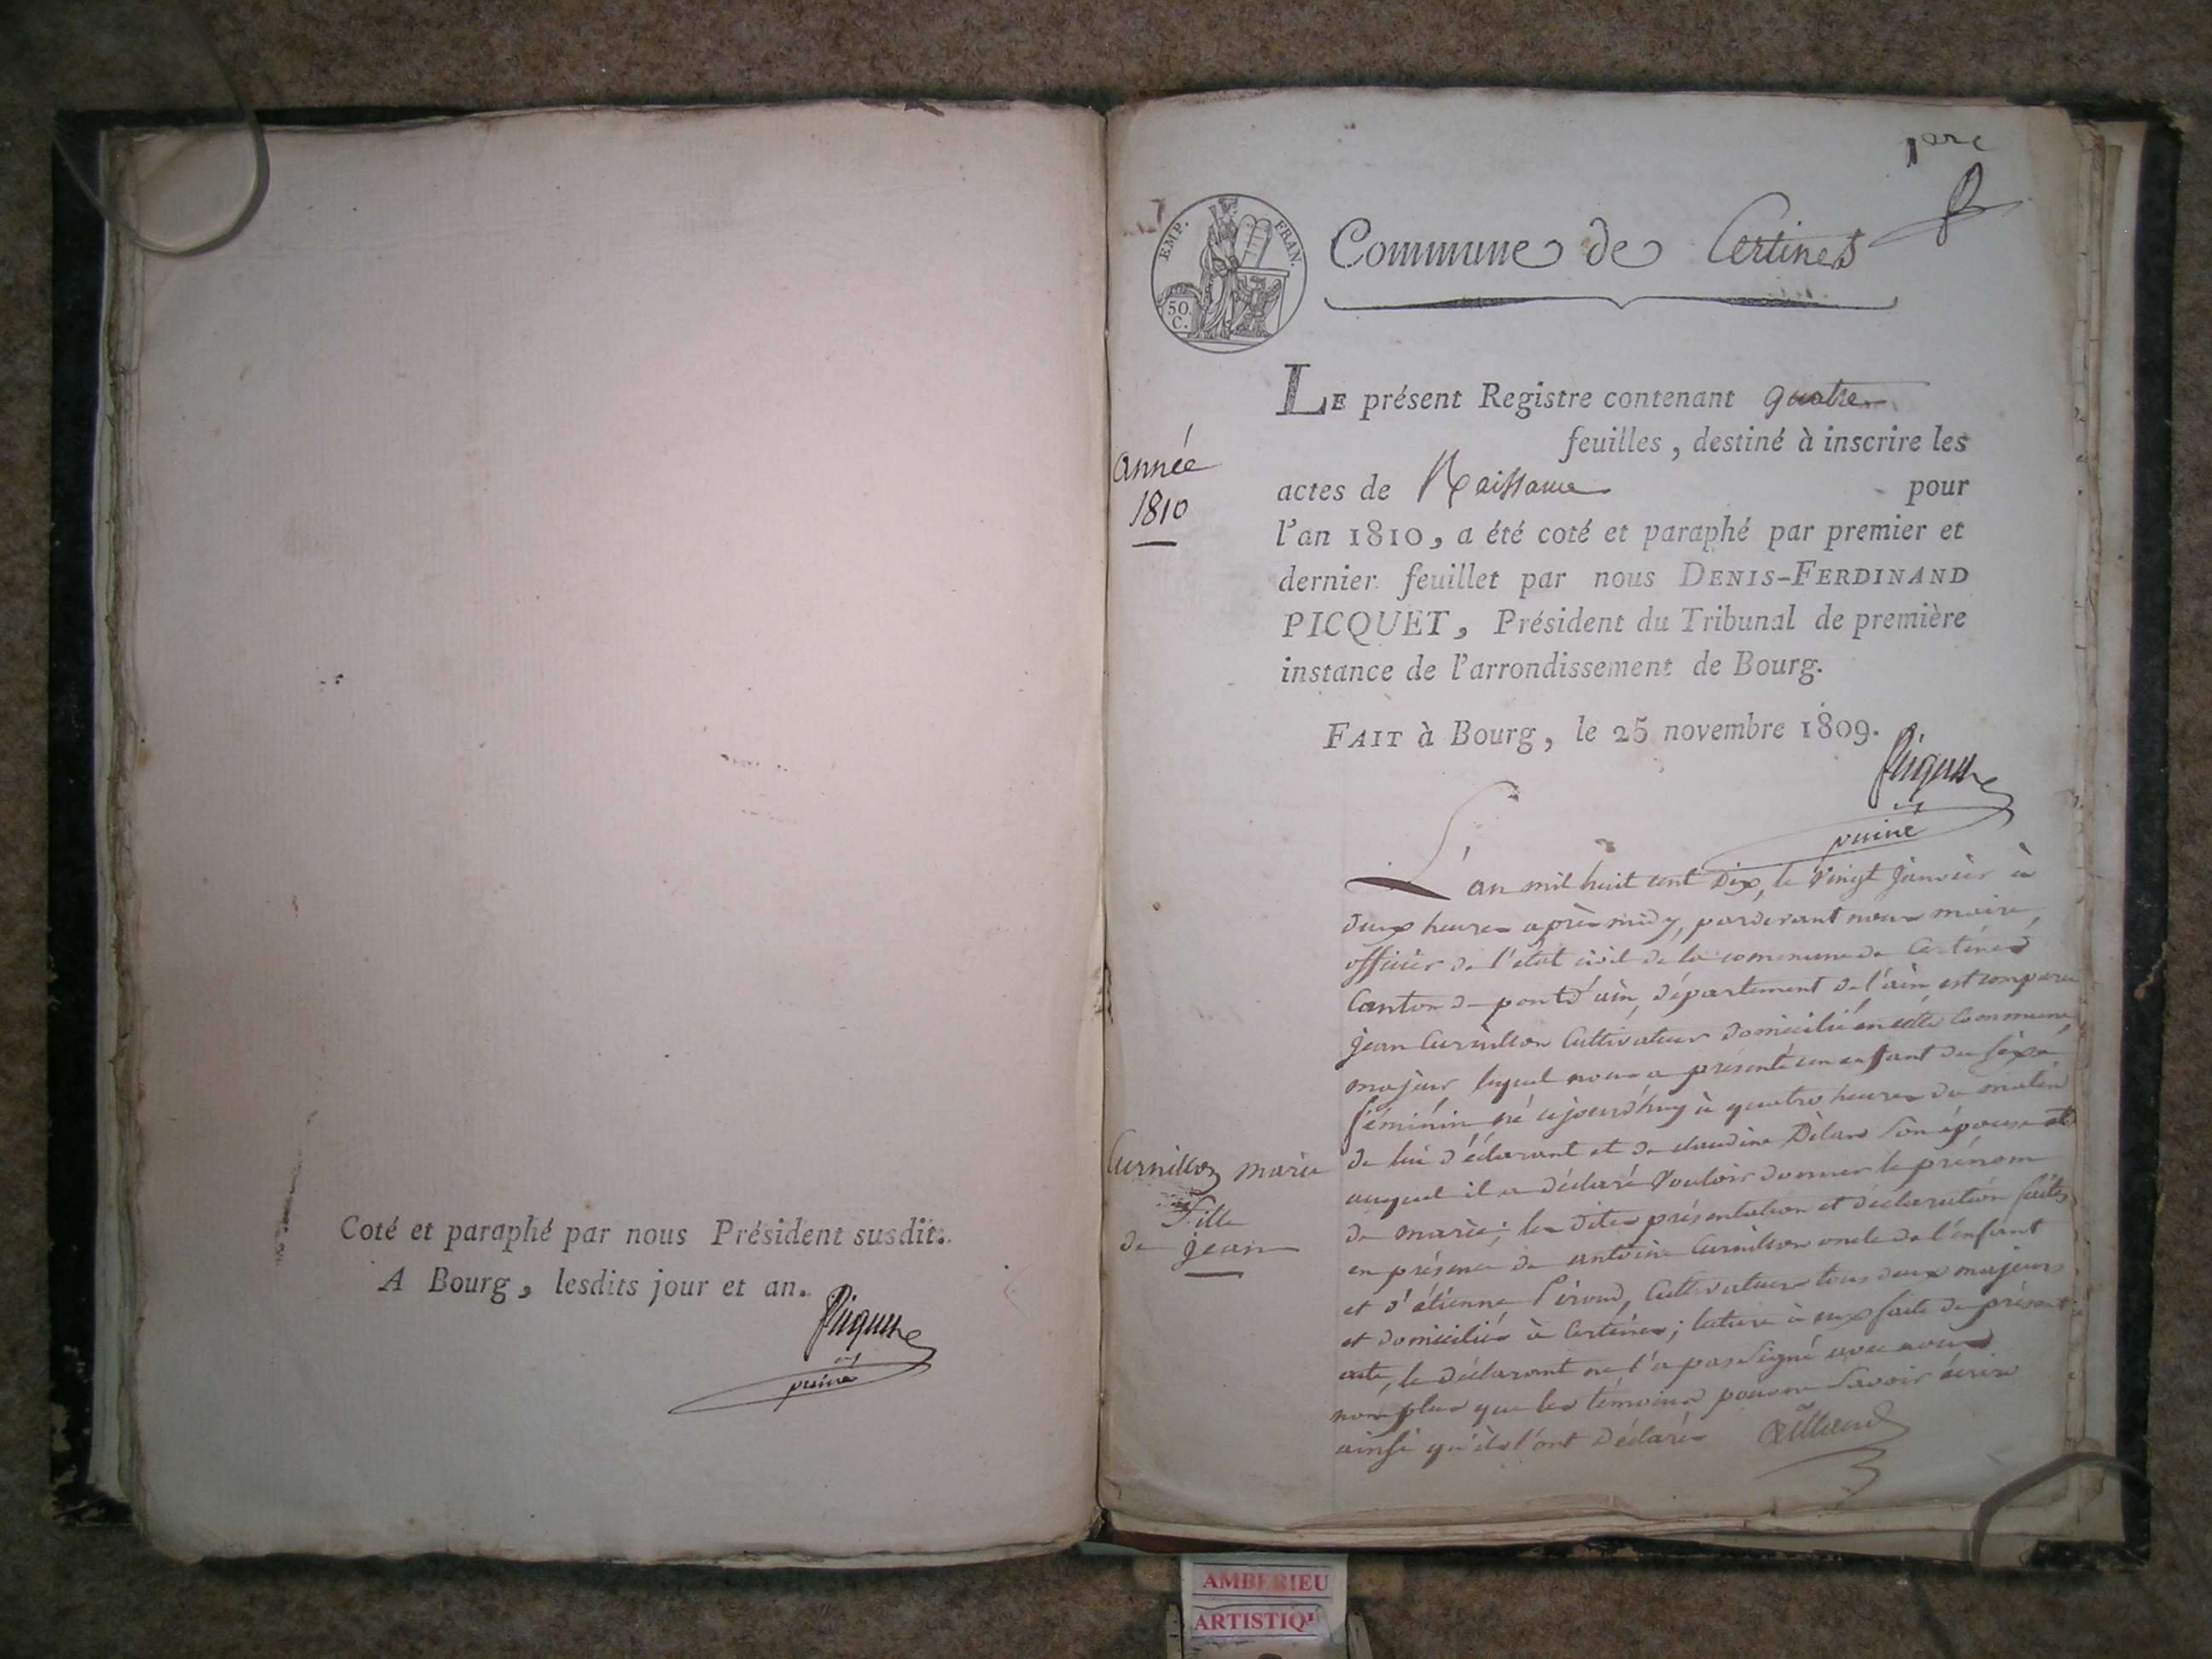 Coté et paraphé par nous Président susdit.
A Bourg, lesdits jour et an.
Picquet
puiné
EMP. FRAN.
50.
C.
Commune de Certines
LE présent Registre contenant quatre
feuilles, destiné à inscrire les
actes de Naissance pour
l'an 1810, a été coté et paraphé par premier et
dernier feuillet par nous DENIS-FERDINAND
PICQUET, Président du Tribunal de première
instance de l'arrondissement de Bourg.
FAIT à Bourg, le 25 novembre 1809.
Picquet
puiné
année
1810
L'an mil huit cent Dix, le vingt janvier à
deux heures après midy, pardevant nous maire,
officier de l'état civil de la commune de Certines
Canton de pont d'ain, département de l'ain, est comparu
jean Curnillon Cultivateur domicilié en cette Commune,
majeur, lequel nous a présenté un enfant du sèxe
féminin né cejourd'huy à quatre heures du matin
de lui déclarant et de claudine son épouse et
auquel il a déclaré vouloir donner le prénom
de marie; les dites présentation et déclaration faites
en présence de antoine Curnillon oncle de l'enfant
et d'étienne Piroud, Cultivateurs tous deux majeurs
et domiciliés à Certines; lecture à eux faite du présent
acte, le déclarant ne l'a pas signé avec nous
non plus que les témoins pour ne savoir écrire
ainsi qu'ils l'ont Déclaré
Curnillon marie
fille
de jean
AMBERIEU
ARTISTIQ